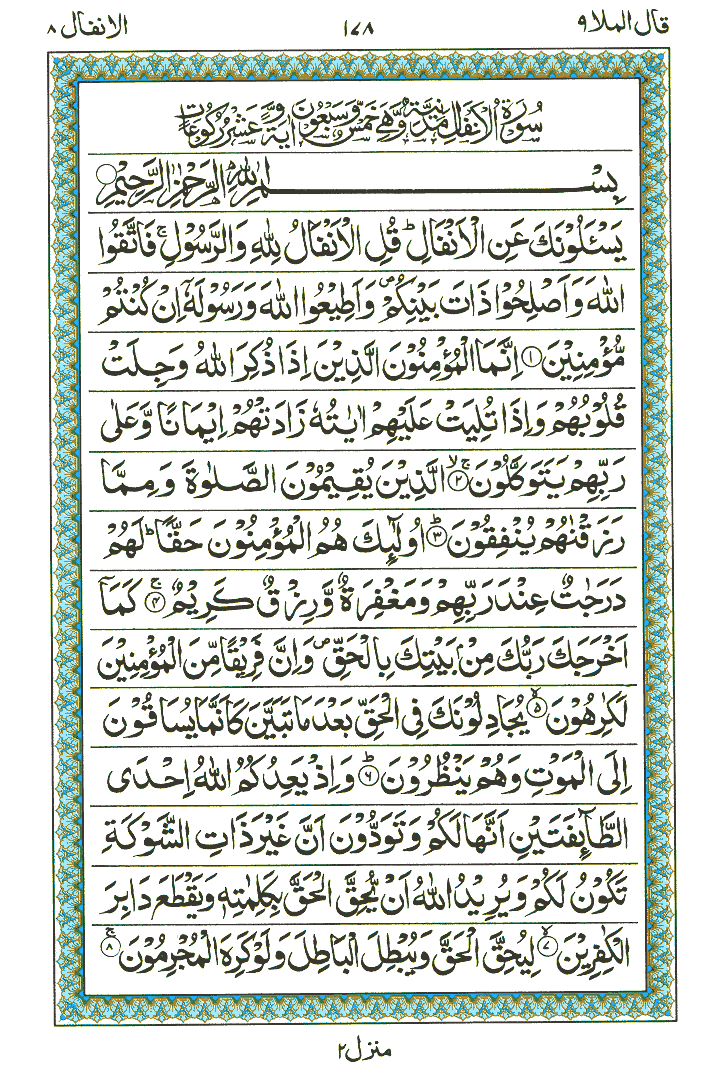 قال الملا ٩ ١٧٨ الانفال ٨
سُوْرَةُ الْاَنْفَالِ مَدَنِيَّةٌ وَّهِيَ خَمْسٌ وَّسَبْعُوْنَ اٰيَةً وَّعَشْرُ رُكُوْعَاتٍ
بِسْمِ اللّٰهِ الرَّحْمٰنِ الرَّحِيْمِ
يَسْـَٔلُوْنَكَ عَنِ الْاَنْفَالِ ؕ قُلِ الْاَنْفَالُ لِلّٰهِ وَالرَّسُوْلِ ۚ فَاتَّقُوا
اللّٰهَ وَاَصْلِحُوْا ذَاتَ بَيْنِكُمْ ۪ وَاَطِيْعُوا اللّٰهَ وَرَسُوْلَهٗۤ اِنْ كُنْتُمْ
مُّؤْمِنِيْنَ ﴿۱﴾ اِنَّمَا الْمُؤْمِنُوْنَ الَّذِيْنَ اِذَا ذُكِرَ اللّٰهُ وَجِلَتْ
قُلُوْبُهُمْ وَاِذَا تُلِيَتْ عَلَيْهِمْ اٰيٰتُهٗ زَادَتْهُمْ اِيْمَانًا وَّعَلٰى
رَبِّهِمْ يَتَوَكَّلُوْنَ ﴿۲﴾ الَّذِيْنَ يُقِيْمُوْنَ الصَّلٰوةَ وَمِمَّا
رَزَقْنٰهُمْ يُنْفِقُوْنَ ﴿۳﴾ؕ اُولٰٓئِكَ هُمُ الْمُؤْمِنُوْنَ حَقًّا ؕ لَهُمْ
دَرَجٰتٌ عِنْدَ رَبِّهِمْ وَمَغْفِرَةٌ وَّرِزْقٌ كَرِيْمٌ ﴿۴﴾ۚ كَمَاۤ
اَخْرَجَكَ رَبُّكَ مِنْۢ بَيْتِكَ بِالْحَقِّ ۪ وَاِنَّ فَرِيْقًا مِّنَ الْمُؤْمِنِيْنَ
لَكٰرِهُوْنَ ﴿۵﴾ۙ يُجَادِلُوْنَكَ فِى الْحَقِّ بَعْدَ مَا تَبَيَّنَ كَاَنَّمَا يُسَاقُوْنَ
اِلَى الْمَوْتِ وَهُمْ يَنْظُرُوْنَ ﴿۶﴾ؕ وَاِذْ يَعِدُكُمُ اللّٰهُ اِحْدَى
الطَّآئِفَتَيْنِ اَنَّهَا لَكُمْ وَتَوَدُّوْنَ اَنَّ غَيْرَ ذَاتِ الشَّوْكَةِ
تَكُوْنُ لَكُمْ وَيُرِيْدُ اللّٰهُ اَنْ يُّحِقَّ الْحَقَّ بِكَلِمٰتِهٖ وَيَقْطَعَ دَابِرَ
الْكٰفِرِيْنَ ﴿۷﴾ۙ لِيُحِقَّ الْحَقَّ وَيُبْطِلَ الْبَاطِلَ وَلَوْ كَرِهَ الْمُجْرِمُوْنَ ﴿۸﴾ۚ
منزل ٢